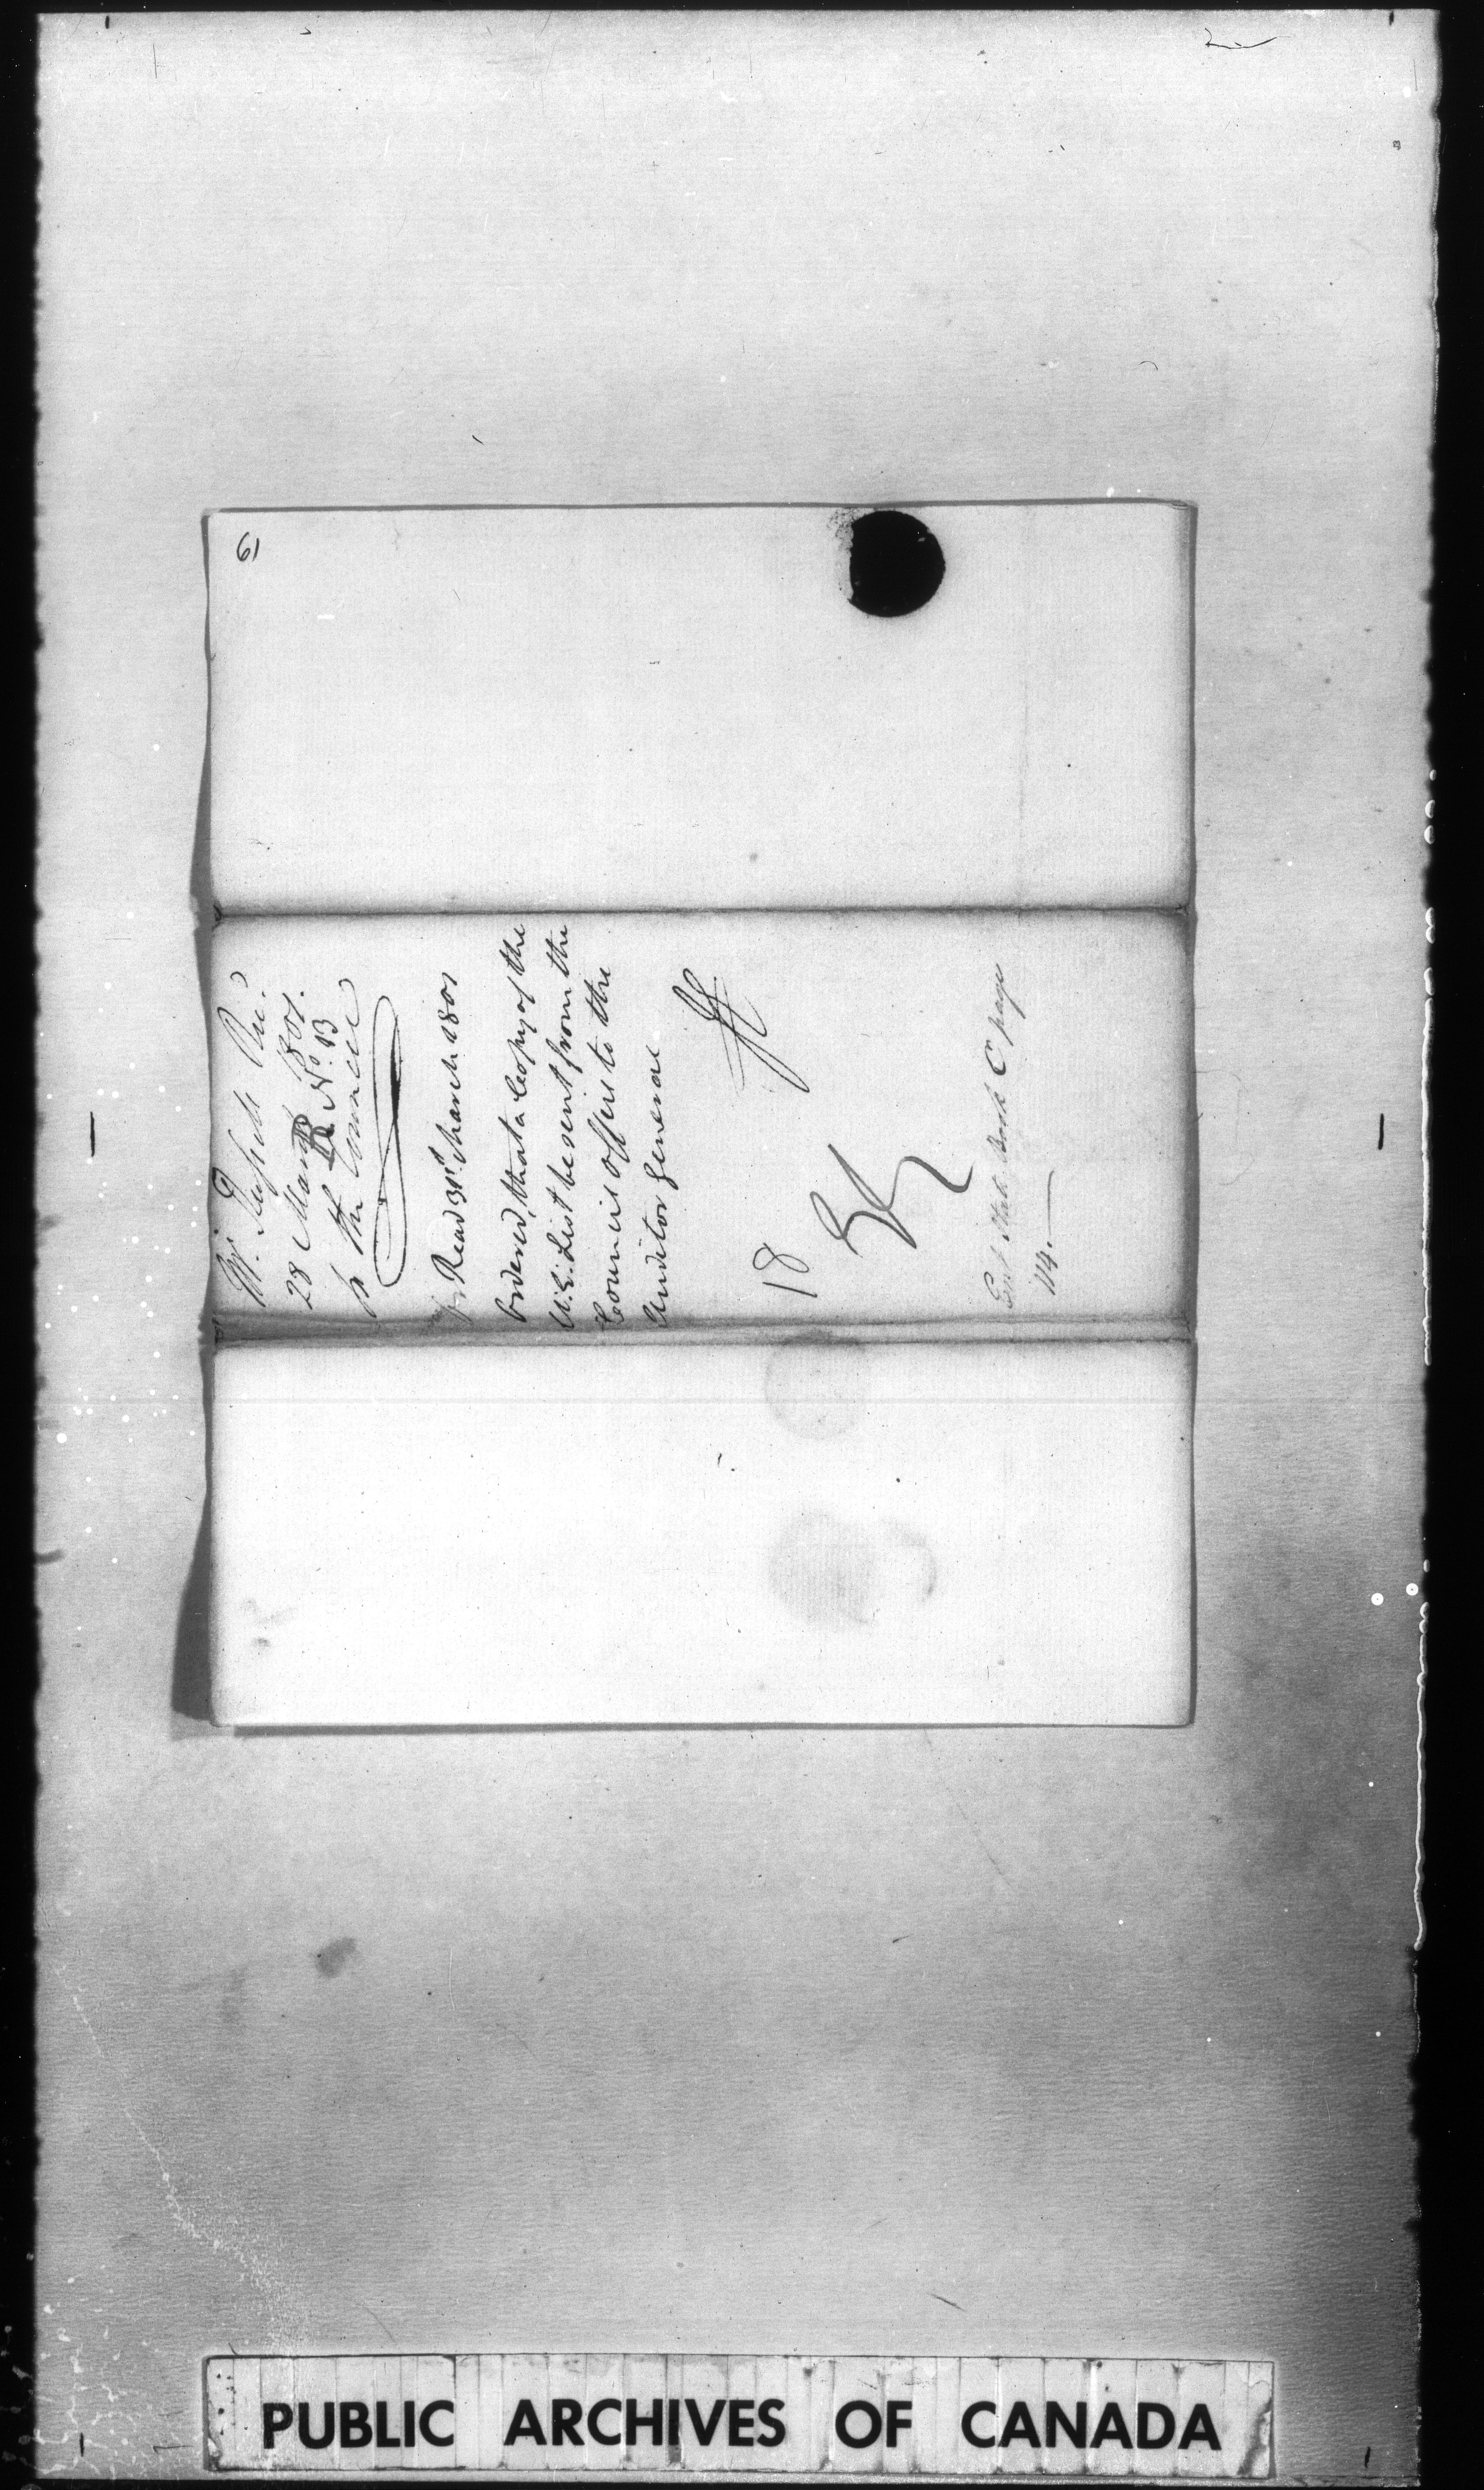 61
Mr. Russell Rec.d
28 March 1801.
R No. 13
in the Council
Read 31st March 1801
Ordered, that a Copy of the
U.E. List be sent from the
Council Office to the
Auditor General
18
Ent.d State Book C page
114.
PUBLIC ARCHIVES OF CANADA